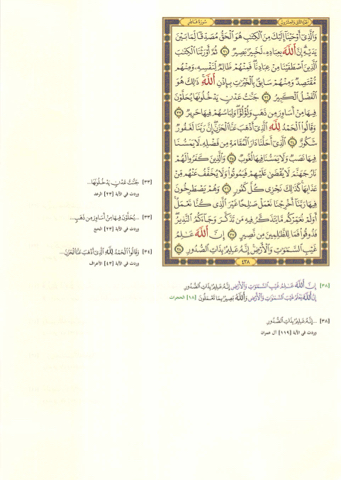 وَالَّذِي أَوْحَيْنَا إِلَيْكَ مِنَ الْكِتَابِ هُوَ الْحَقُّ مُصَدِّقًا لِّمَا بَيْنَ
يَدَيْهِ إِنَّ اللَّهَ بِعِبَادِهِ لَخَبِيرٌ بَصِيرٌ (٣١) ثُمَّ أَوْرَثْنَا الْكِتَابَ
الَّذِينَ اصْطَفَيْنَا مِنْ عِبَادِنَا فَمِنْهُمْ ظَالِمٌ لِّنَفْسِهِ وَمِنْهُم
مُّقْتَصِدٌ وَمِنْهُمْ سَابِقٌ بِالْخَيْرَاتِ بِإِذْنِ اللَّهِ ذَلِكَ هُوَ
الْفَضْلُ الْكَبِيرُ (٣٢) جَنَّاتُ عَدْنٍ يَدْخُلُونَهَا يُحَلَّوْنَ
فِيهَا مِنْ أَسَاوِرَ مِن ذَهَبٍ وَلُؤْلُؤًا وَلِبَاسُهُمْ فِيهَا حَرِيرٌ (٣٣)
وَقَالُوا الْحَمْدُ لِلَّهِ الَّذِي أَذْهَبَ عَنَّا الْحَزَنَ إِنَّ رَبَّنَا لَغَفُورٌ
شَكُورٌ (٣٤) الَّذِي أَحَلَّنَا دَارَ الْمُقَامَةِ مِن فَضْلِهِ لَا يَمَسُّنَا
فِيهَا نَصَبٌ وَلَا يَمَسُّنَا فِيهَا لُغُوبٌ (٣٥) وَالَّذِينَ كَفَرُوا لَهُمْ
نَارُ جَهَنَّمَ لَا يُقْضَى عَلَيْهِمْ فَيَمُوتُوا وَلَا يُخَفَّفُ عَنْهُم مِّنْ
عَذَابِهَا كَذَلِكَ نَجْزِي كُلَّ كَفُورٍ (٣٦) وَهُمْ يَصْطَرِخُونَ
فِيهَا رَبَّنَا أَخْرِجْنَا نَعْمَلْ صَالِحًا غَيْرَ الَّذِي كُنَّا نَعْمَلُ
أَوَلَمْ نُعَمِّرْكُم مَّا يَتَذَكَّرُ فِيهِ مَن تَذَكَّرَ وَجَاءَكُمُ النَّذِيرُ
فَذُوقُوا فَمَا لِلظَّالِمِينَ مِن نَّصِيرٍ (٣٧) إِنَّ اللَّهَ عَالِمُ
غَيْبِ السَّمَاوَاتِ وَالْأَرْضِ إِنَّهُ عَلِيمٌ بِذَاتِ الصُّدُورِ (٣٨)
٤٣٨
[٣٣] جَنَّاتُ عَدْنٍ يَدْخُلُونَهَا...
وردت في الآية [٢٣] الرعد
[٣٣] ...يُحَلَّوْنَ فِيهَا مِنْ أَسَاوِرَ مِن ذَهَبٍ...
وردت في الآية [٢٣] الحج
[٣٤] وَقَالُوا الْحَمْدُ لِلَّهِ الَّذِي أَذْهَبَ عَنَّا الْحَزَنَ...
وردت في الآية [٤٣] الأعراف
[٣٨] إِنَّ اللَّهَ عَالِمُ غَيْبِ السَّمَاوَاتِ وَالْأَرْضِ إِنَّهُ عَلِيمٌ بِذَاتِ الصُّدُورِ
إِنَّ اللَّهَ يَعْلَمُ غَيْبَ السَّمَاوَاتِ وَالْأَرْضِ وَاللَّهُ بَصِيرٌ بِمَا تَعْمَلُونَ [١٨] الحجرات
[٣٨] ...إِنَّهُ عَلِيمٌ بِذَاتِ الصُّدُورِ
وردت في الآية [١١٩] آل عمران